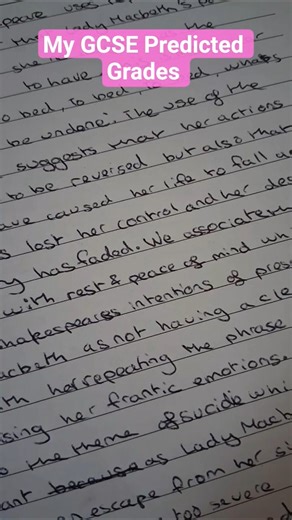 My GCSE Predicted
Grades
the Lady Macbeth's
she is the
to have
to bed, to bed
be undone'. The use of the
suggests that her actions
to be reversed but also that
have caused her life to fall
lost her control and her
has faded. We associate
with rest & peace of mind
Shakespeares intentions of
Macbeth as not having a
with her repeating the phrase
her frantic emotions.
to the theme of sucide
because as Lady
escape from her
too severe